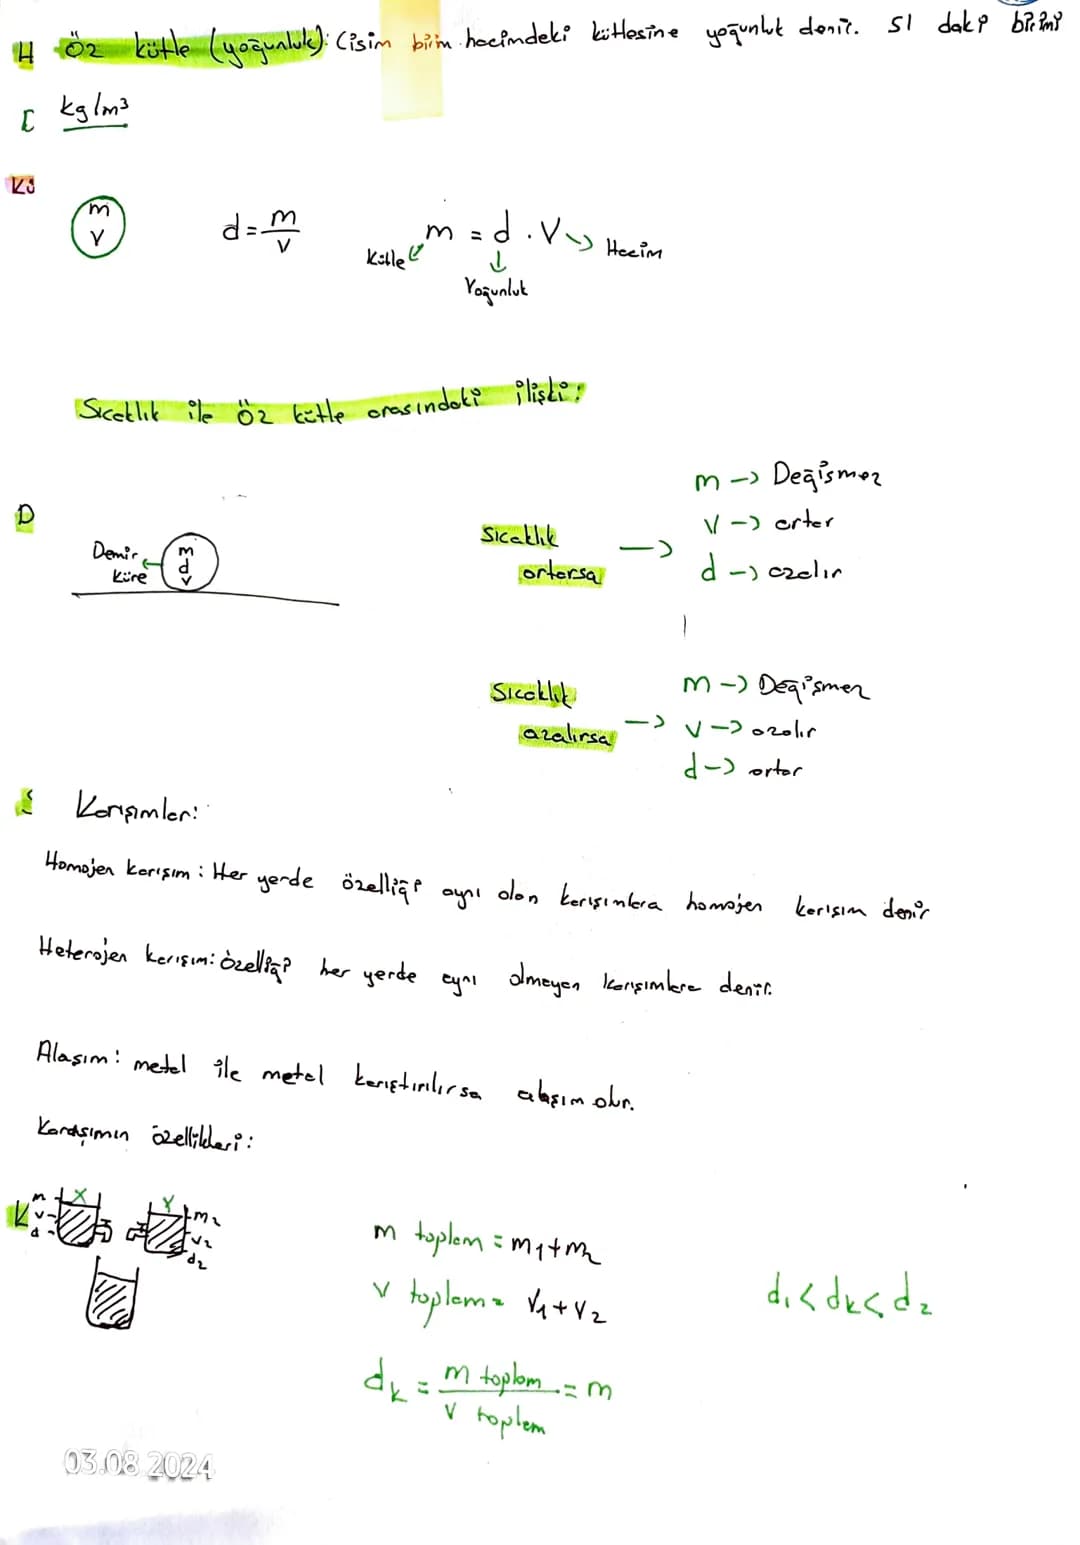 H Öz kütle (yoğunluk): Cisim birim hacimdeki kütlesine yoğunluk denir. SI daki birimi
kg/m³
m
V
d = m/v
m = d . V → Hacim
Kütle
Yoğunluk
Sıcaklık ile Öz kütle arasındaki ilişki:
D
Demir
küre
m
d
v
Sıcaklık
artarsa
→
m → Değişmez
V → artar
d → azalır
Sıcaklık
azalırsa
→
m → Değişmez
V → azalır
d → artar
Karışımler:
Homojen karışım: Her yerde özelliği aynı olan karışımlara homojen karışım denir
Heterojen karışım: özelliği her yerde aynı olmayan karışımlara denir.
Alaşım: metal ile metal karıştırılırsa alaşım olur.
özellikleri:
K
m
v
d
X
Y
m2
v2
d2
m toplam = m1+m2
V toplam = V1+V2
d1 < dk < d2
dk = m toplam / V toplam = m
03.08.2024